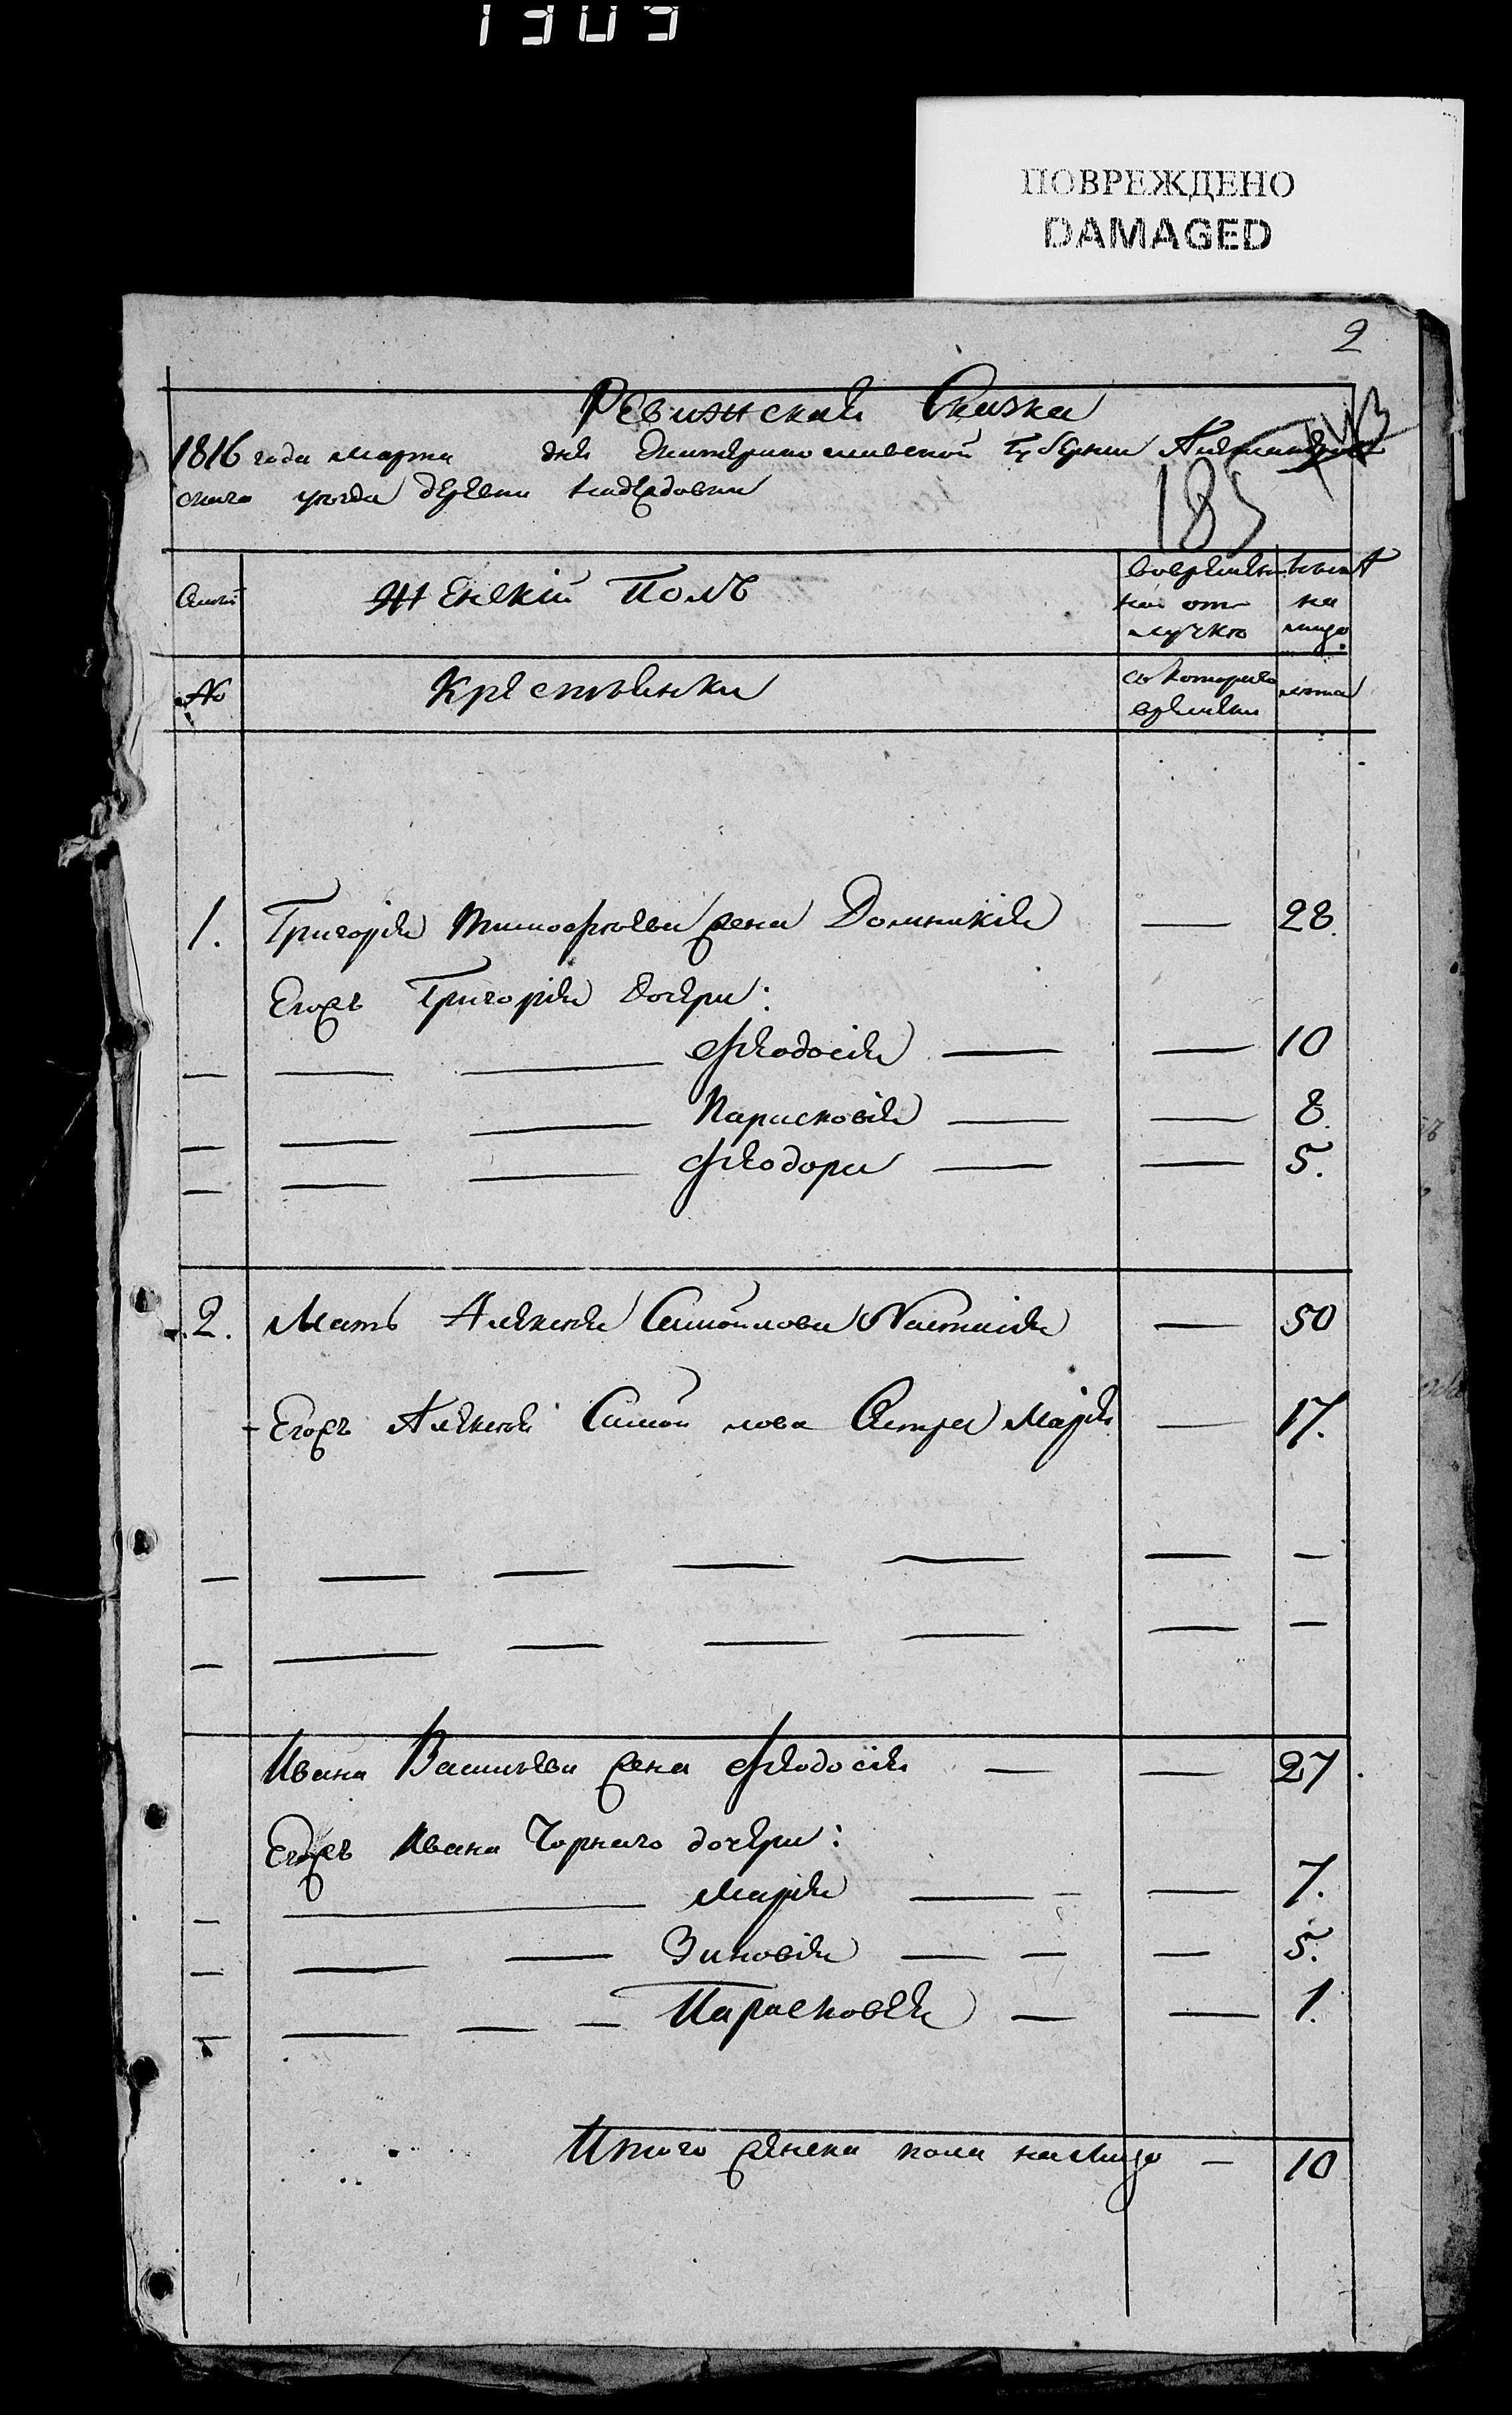 1303
ПОВРЕЖДЕНО
DAMAGED
2
Ревижская Сказка
1816 года марта дня Екатеринославской Губернии Александров
скаго уезда деревни
185
Семьи
Женскій Полъ
вовремен
ной от
лучке
ныне
на
лицо
№
Крестьянки
съ котораго
времени
лета
1. Григорія Тимофеева жена Домникія — 28.
Егожъ Григорія дочери:
— — — Феодосія — — 10
— — — Парасковія — — 8.
— — — Феодора — — 5.
2. Мать Алексея Самойлова Настасія — 50
Егожъ Алексея Самой лова Сестра Марія — 17.
— — — — — — —
— — — — — — —
Ивана Васильева жена Феодосія — — 27
Егожъ Ивана Чорнаго дочери:
— — Марія — — — 7.
— — — Зиновія — — — 5.
— — — — Парасковея — — 1.
Итого женска пола налицо — 10